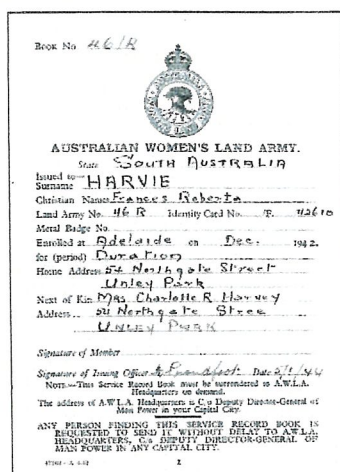 Book No 46/R
AUSTRALIAN WOMEN'S LAND ARMY.
State SOUTH AUSTRALIA
Issued to—
Surname HARVIE
Christian Names Frances Roberta
Land Army No. 46 R Identity Card No. F. 42610
Metal Badge No.
Enrolled at Adelaide on Dec. 1942.
for (period) Duration
Home Address 54 Northgate Street
Unley Park
Next of Kin Mrs Charlotte R Harvey
Address 54 Northgate Stree
UNLEY PARK
Signature of Member
Signature of Issuing Officer Date 5/1/44
NOTE.—This Service Record Book must be surrendered to A.W.L.A. Headquarters on demand.
The address of A.W.L.A. Headquarters is C/o Deputy Director-General of Man Power in your Capital City.
ANY PERSON FINDING THIS SERVICE RECORD BOOK IS
REQUESTED TO SEND IT WITHOUT DELAY TO A.W.L.A.
HEADQUARTERS, C/o DEPUTY DIRECTOR-GENERAL OF
MAN POWER IN ANY CAPITAL CITY.
1